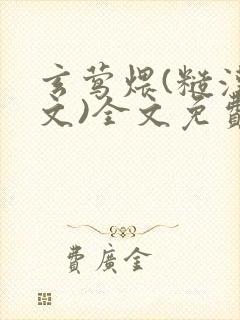 玄莺煨(糙汉
文)全文免费
费广金